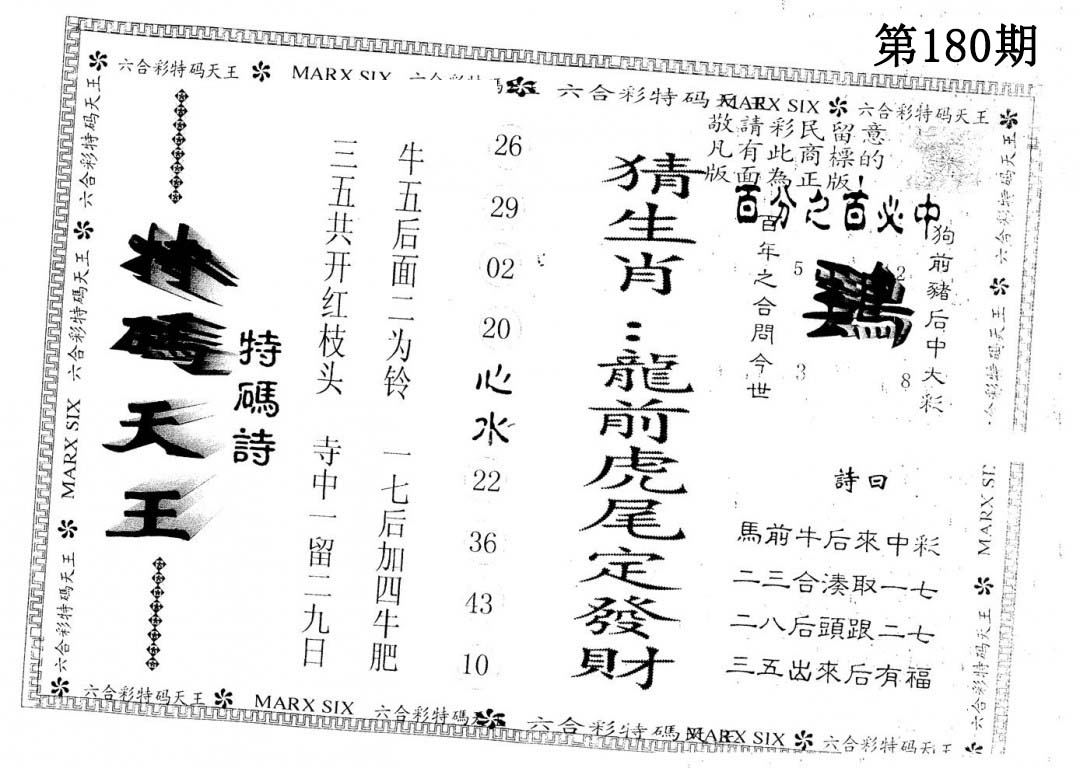 第180期
六合彩特码天王 MARX SIX
六合彩特码天王 MARX SIX 六合彩特码天王
敬請彩民留意
凡有此商標的
版面為正版!
百分之百必中
狗前豬后中大彩
鷄
百年之合問今世
5 2
3 8
詩曰
馬前牛后來中彩
二三合湊取一七
二八后頭跟二七
三五出來后有福
猜生肖:龍前虎尾定發財
26
29
02
20
心水
22
36
43
10
牛五后面二为铃 一七后加四牛肥
三五共开红枝头 寺中一留二九日
特碼詩
特碼天王
六合彩特码天王
六合彩特码天王
MARX SIX
六合彩特码天王
六合彩特码天王
六合彩特码天王
MARX SIX
六合彩特码天王
六合彩特码天王 MARX SIX 六合彩特碼天
六合彩特碼天王 MARX SIX 六合彩特码天王